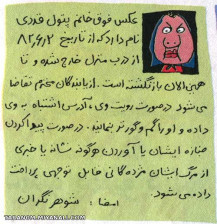 عکس فوق خانم بتول قدری
نام دارد که از تاریخ ۸۲,۶,۲
از درب منزل خارج شده و تا
همین الان بازنگشته است. از یابندگان محترم تقاضا
می شود در صورت رویت وی آدرس اشتباه به وی
داده و او را گم و گورتر بنمایند. در صورت پیدا کردن
جنازه ایشان یا آوردن هرگونه نشانه یا خبری
از مرگ ایشان مژدگانی قابل توجهی پرداخت
داده می شود.
امضا: شوهر نگران
TARANOVA.MIYANBLOG.COM